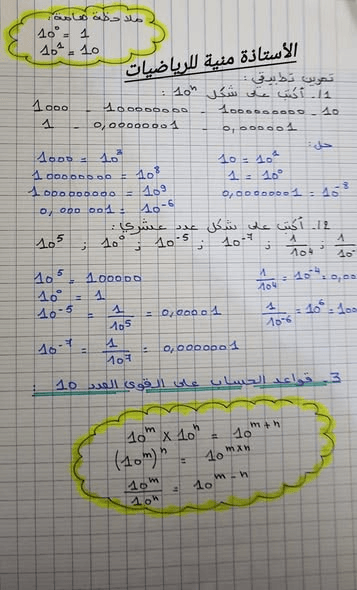 ملاحظة هامة:
10⁰ = 1
10¹ = 10
الأستاذة منية للرياضيات
تمرين تطبيقي:
1/. أكتب على شكل 10ⁿ :
1000 - 100000000 - 1000000000 - 10
1 - 0,00000001 - 0,000001
حل:
1000 = 10³ 10 = 10¹
100000000 = 10⁸ 1 = 10⁰
1000000000 = 10⁹ 0,00000001 = 10⁻⁸
0,000 001 = 10⁻⁶
2/. أكتب على شكل عدد عشري:
10⁵ ; 10⁰ ; 10⁻⁵ ; 10⁻⁷ ; 1/10⁴ ; 1/10⁻
10⁵ = 100000 1/10⁴ = 10⁻⁴ = 0,00
10⁰ = 1
10⁻⁵ = 1/10⁵ = 0,00001 1/10⁻⁶ = 10⁶ = 100
10⁻⁷ = 1/10⁷ = 0,0000001
3- قواعد الحساب على القوى العدد 10 :
10ᵐ × 10ⁿ = 10ᵐ⁺ⁿ
(10ᵐ)ⁿ = 10ᵐˣⁿ
10ᵐ/10ⁿ = 10ᵐ⁻ⁿ